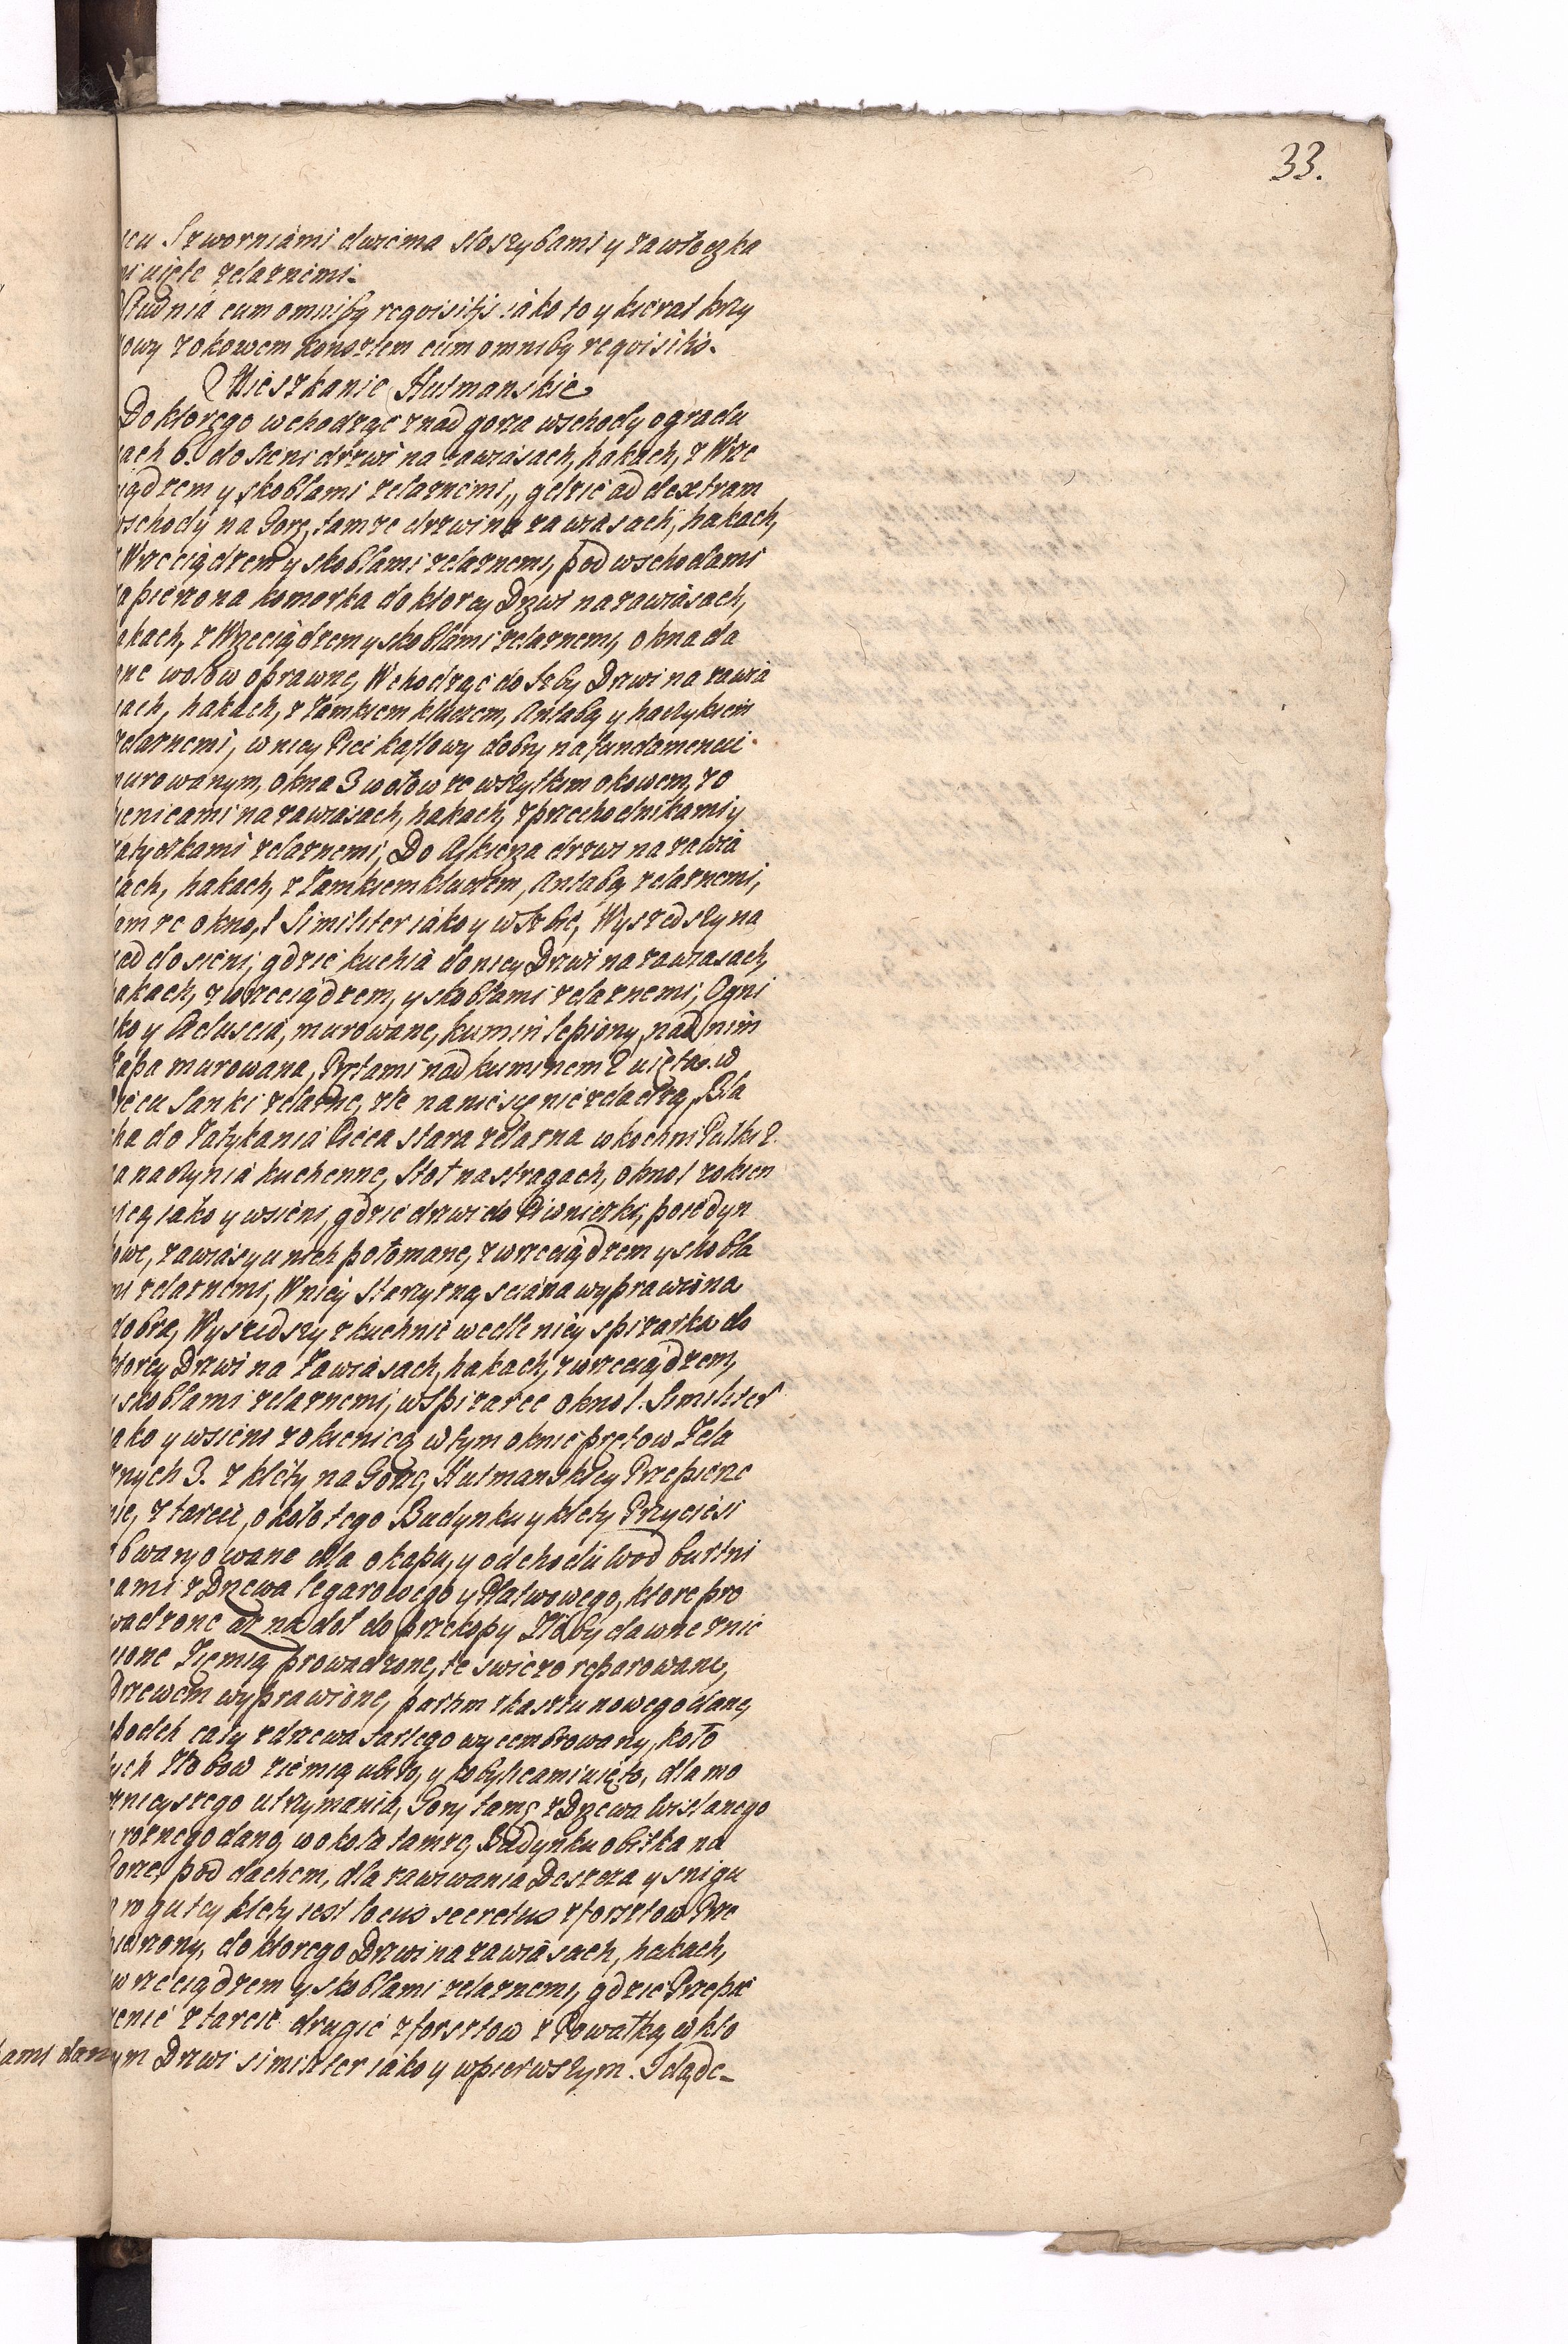 33.
icu Sztworniámi dwiema stoszybami y zawłoczka
mi uięte zelaznemi.
Studnia cum omnibg reqvisitis iáko to y kierat krzy
zowy z okowem konsztem cum omnibg reqvisitis.
Mieszkanie Hutmanskie
Do ktorego wchodząć znad gorza wschody o gradu
sach 6. do sieni drzwi na zawiásach, hakach, z Wrze
ciądzem y skoblami zelaznemi,, gdzie ad dextram
wschody na Gorę, tamze drzwi na zawiásach, hakach,
z Wrzeciądzem y skoblami zelaznemi, pod wschodami
zapierzona komorka do ktorey Drzwi na zawiásach,
hakach, z Wrzeciądzem y skoblami zelaznemi, okna da
wne wołow oprawne, Wchodząć do Izby Drzwi na zawia
sach, hakach, z Zamkiem kluczem, Antabą y haczykiem
zelaznemi, w niey Piec kaflowy dobry na fundamencie
murowanym, okna 3 w ołow ze wszytkim okowem, z o
kienicami na zawiásach, hakach, z przechodnikami y
zatyczkami zelaznemi, Do Alkierza drzwi na zawiá
sach, hakach, z Zamkiem kluczem, Antabą zelaznemi,
tamze okno 1 Similiter iáko y w Izbie, Wyszedszy na
zad do sieni, gdzie kuchiá do niey Drzwi na zawiasach,
hakach, z wrzeciądzem, y skoblami zelaznemi, Ogni
sko y Czeluscia, murowane, kumin lepiony, nad nim
kapa murowana, Prętami nad kuminem 2 uięta. w
Piecu Sanki zelazne, złe na nic się nie zdadzą, Bla
cha do Zatykania Pieca stara zelazna w kochni Pułki 2.
na naczynia kuchenne, Stoł na stragach, okno 1 z okien
nicą iako y w sieni, gdzie drzwi do Piwniczki, poiedyn
kowe, zawiásy u nich połomane, z wrzeciądzem y skobla
mi zelaznemi, W niey starzyzną sciána wyprawiona
dobra, Wyszedszy z kuchnie wedle niey spizarka do
ktorey Drzwi na Zawiásach, hakach, z wrzeciądzem,
y skoblami zelaznemi, w Spizarce okno 1. Similiter
iako y w sieni z okienicą w tym oknie prętow Zela
znych 3. z klety na Gorę, Hutmanskiey Przepierze
nie, z tarcic, około tego Budynku y klety Przyciesi
obwaryowane dla okapu, y odchodu wod burtni
cami z Drzewa legarowego y Płatwowego, ktore pro
wadzone az na doł do przekopy Złoby dawne znie
sione Ziemią prowadzone, te swiezo reparowane,
Drzewem wyprawione, partim z kasztu nowego dane,
spodek cały z drzewa tartego wycembrowany, koło
tych Złobow ziemią ubito, y kobylicami uięto, dla mo
cnieyszego utrzymania, Gory tamę z Drzewa Wislanego
y roznego daną w okoła tamze, Budynku obitka na
Gorze, pod dachem, dla zawiwania Deszcza y snigu
w rogu tey klety iest locus secretus z forsztow Prze
pierzony, do ktorego Drzwi na zawiásach, hakach,
z wrzeciądzem y skoblami zelaznemi, gdzie Przepie
rzenie z tarcic drugie z forsztow z Powałką w kto
rym Drzwi similiter iáko y w pierwszym. Idąc do-